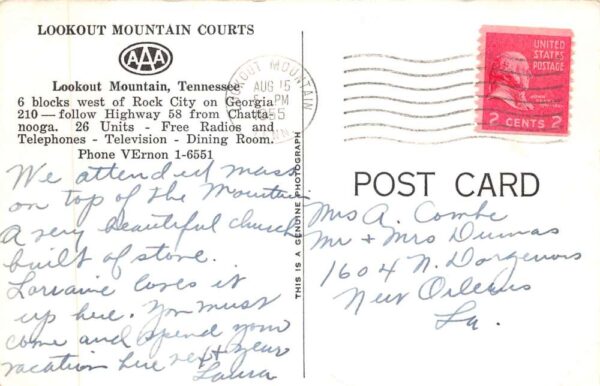 LOOKOUT MOUNTAIN COURTS
AAA
Lookout Mountain, Tennessee
6 blocks west of Rock City on Georgia
210 — follow Highway 58 from Chatta-
nooga. 26 Units - Free Radios and
Telephones - Television - Dining Room.
Phone VErnon 1-6551
We attended mass
on top of the Mountain
A very beautiful church
built of stone.
Lorraine loves it
up here. You must
come and spend your
vacation here next year
Laura
THIS IS A GENUINE PHOTOGRAPH
LOOKOUT MOUNTAIN
AUG 15
PM
1955
TENN
UNITED
STATES
POSTAGE
2 CENTS 2
POST CARD
Mrs A. Combe
Mr + Mrs Dumas
1604 N. Dorgenois
New Orleans
La.